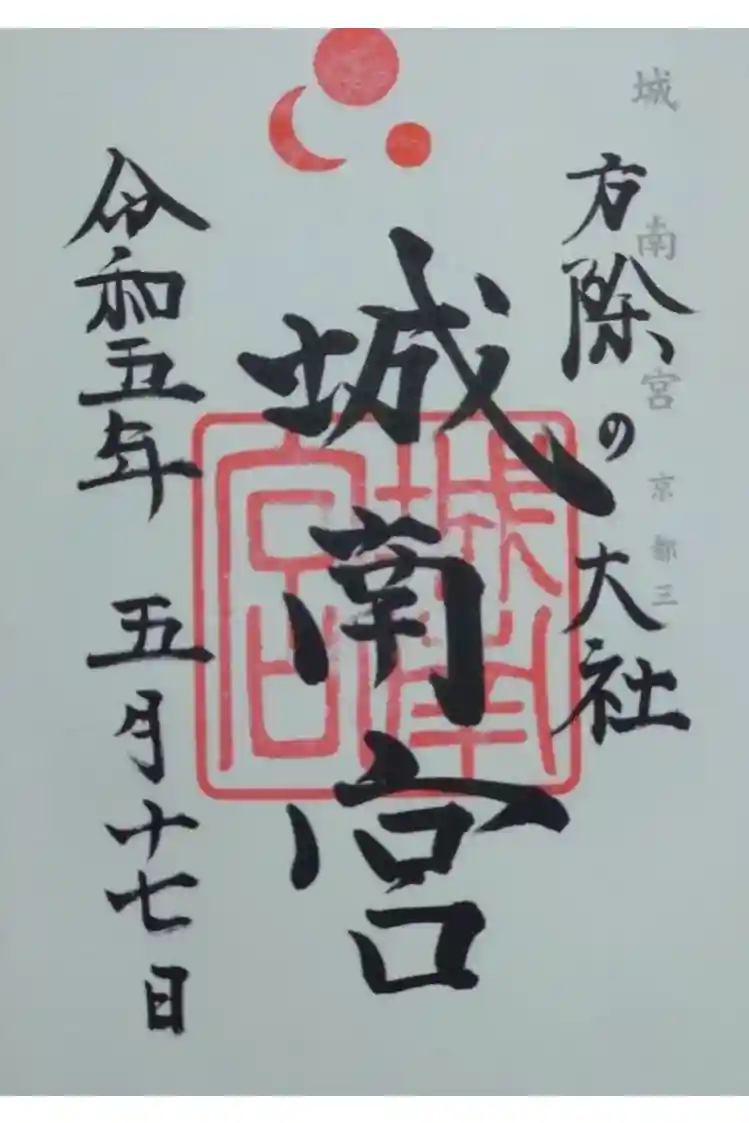 城南宮 京都三
方除の大社
城南宮
城南宮
令和五年 五月十七日